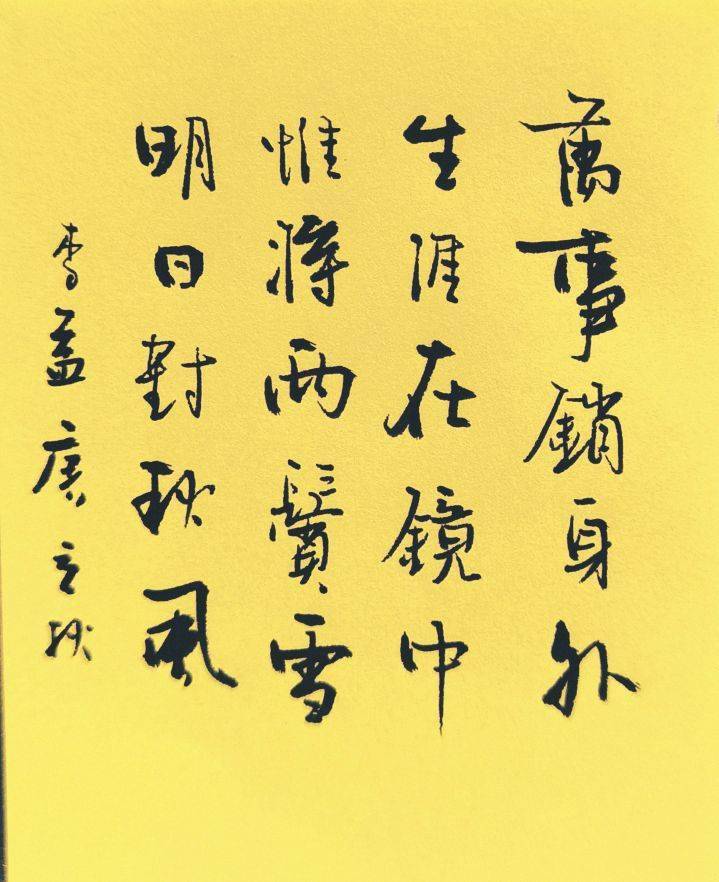 萬事銷身外
生涯在鏡中
惟將兩鬢雪
明日對秋風
李益廣立秋